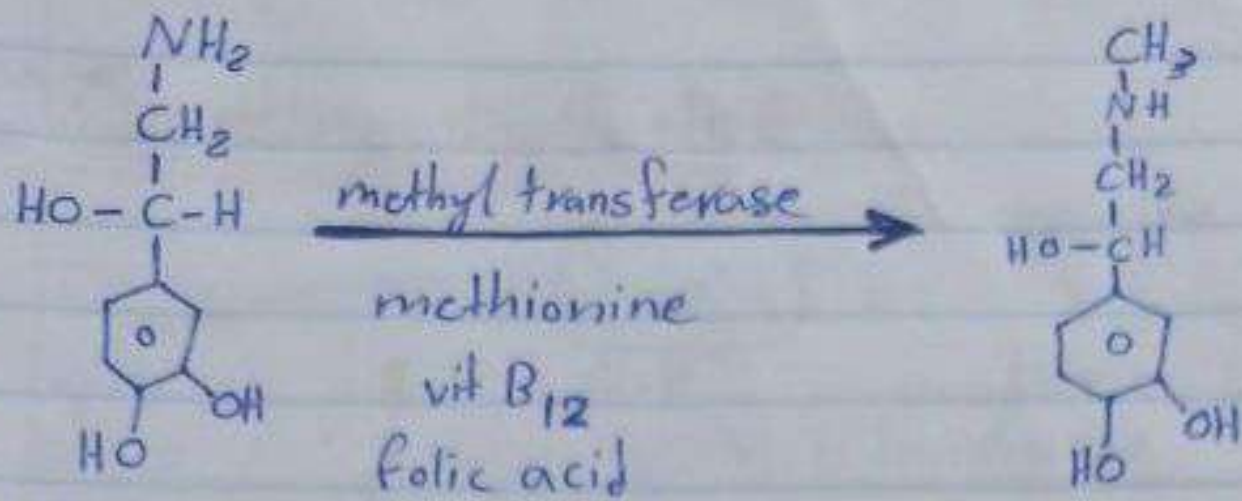 NH2
CH2
HO-C-H
HO
OH
methyl transferase
methionine
vit B12
folic acid
CH3
NH
CH2
HO-CH
HO
OH